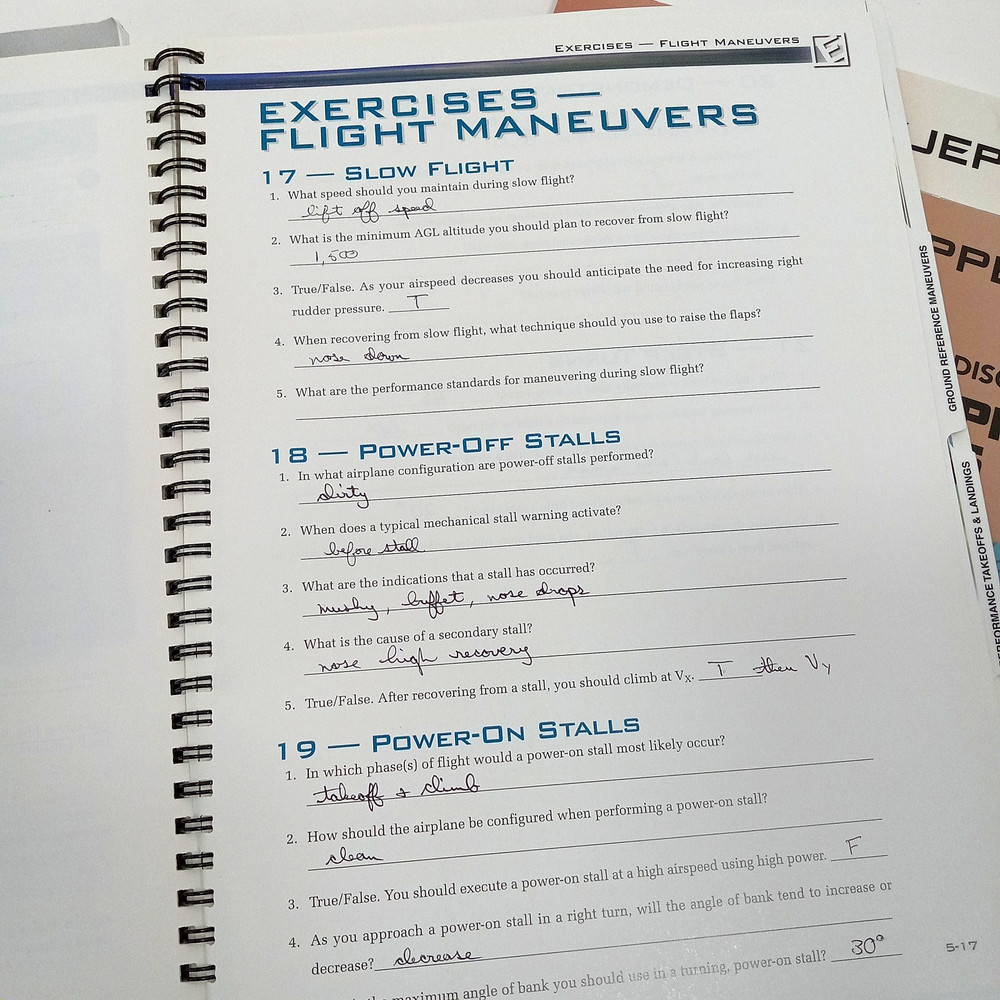 EXERCISES — FLIGHT MANEUVERS
EXERCISES —
FLIGHT MANEUVERS
17 — SLOW FLIGHT
1. What speed should you maintain during slow flight?
lift off speed
2. What is the minimum AGL altitude you should plan to recover from slow flight?
1,500
3. True/False. As your airspeed decreases you should anticipate the need for increasing right
rudder pressure. T
4. When recovering from slow flight, what technique should you use to raise the flaps?
nose down
5. What are the performance standards for maneuvering during slow flight?
18 — POWER-OFF STALLS
1. In what airplane configuration are power-off stalls performed?
dirty
2. When does a typical mechanical stall warning activate?
before stall
3. What are the indications that a stall has occurred?
mushy, buffet, nose drops
4. What is the cause of a secondary stall?
nose high recovery
5. True/False. After recovering from a stall, you should climb at VX. T then Vy
19 — POWER-ON STALLS
1. In which phase(s) of flight would a power-on stall most likely occur?
takeoff & climb
2. How should the airplane be configured when performing a power-on stall?
clean
3. True/False. You should execute a power-on stall at a high airspeed using high power. F
4. As you approach a power-on stall in a right turn, will the angle of bank tend to increase or
decrease? decrease
maximum angle of bank you should use in a turning, power-on stall? 30°
5-17
GROUND REFERENCE MANEUVERS
PERFORMANCE TAKEOFFS & LANDINGS
JEP
PPE
DISC